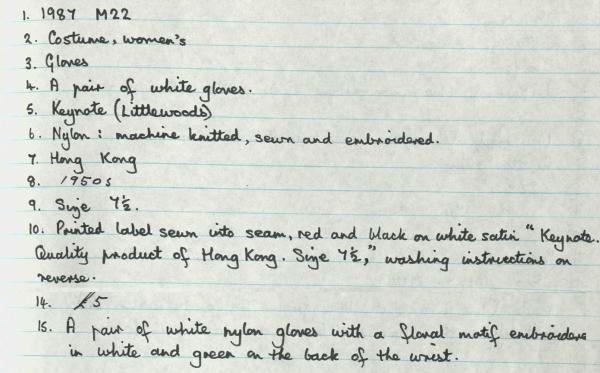 1. 1987 M22
2. Costume, women's
3. Gloves
4. A pair of white gloves.
5. Keynote (Littlewoods)
6. Nylon : machine knitted, sewn and embroidered.
7. Hong Kong
8. 1950s
9. Size 7½.
10. Printed label sewn into seam, red and black on white satin "Keynote.
Quality product of Hong Kong. Size 7½," washing instructions on
reverse.
14. £5
15. A pair of white nylon gloves with a floral motif embroidere
in white and green on the back of the wrist.